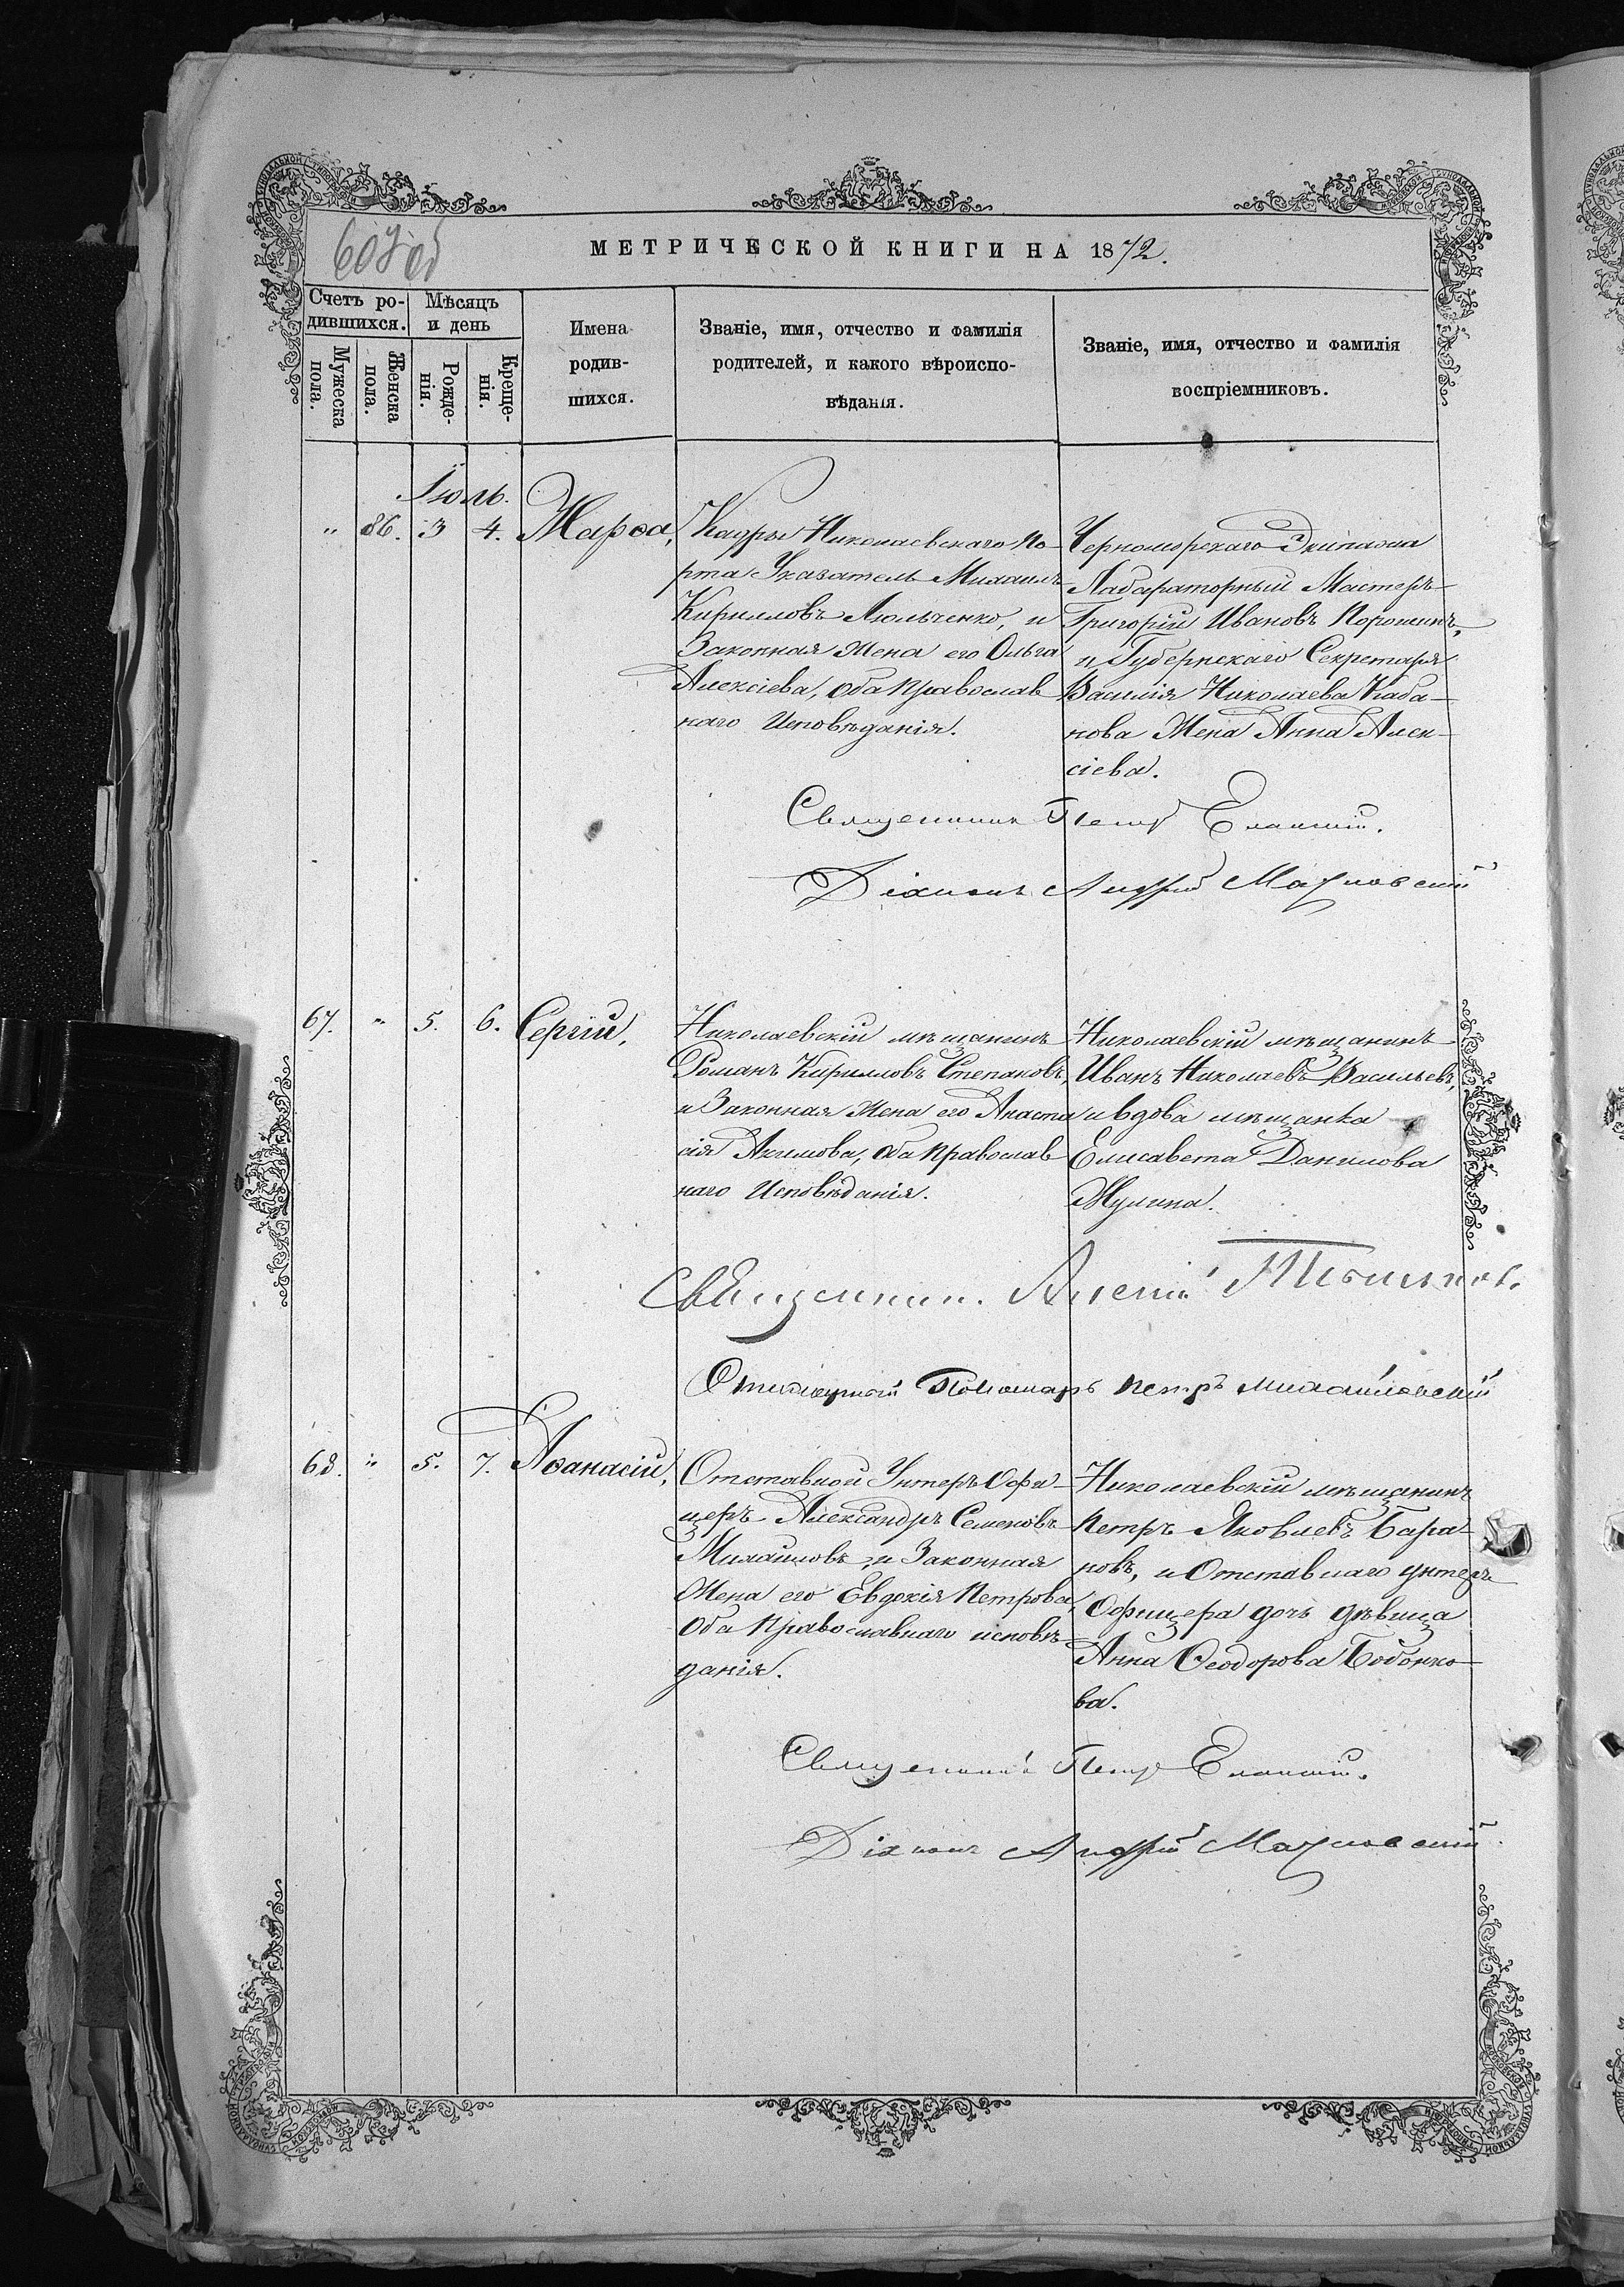 МЕТРИЧЕСКОЙ КНИГИ НА 1872.
607 об
Счетъ ро-
дившихся.
Мужеска
пола.
Женска
пола.
Мѣсяцъ
и день
Рожде-
нія.
Креще-
нія.
Имена
родив-
шихся.
Званіе, имя, отчество и фамилія
родителей, и какого вѣроиспо-
вѣданія.
Званіе, имя, отчество и фамилія
воспріемниковъ.
Іюль.
" 86. 3 4. Марѳа,
Кадры Николаевскаго По-
рта Указатель Михаилъ
Кирилловъ Люльченко, и
Законная Жена его Ольга
Алексіева, оба Православ
наго Исповѣданія.
Черноморскаго Экипажа
Лабараторный Мастеръ
Григорій Ивановъ Порошинъ,
и Губернскаго Секретаря
Василія Николаева Каба-
нова Жена Анна Алек-
сіева.
Священникъ Петръ Еланскій.
Діаконъ Андрей
67. " 5. 6. Сергій,
Николаевскій мѣщанинъ
Романъ Кирилловъ Степановъ,
и Законная Жена его Анаста
сія Акимова, оба Православ
наго Исповѣданія.
Николаевскій мѣщанинъ
Иванъ Николаевъ Васильевъ,
и вдова мѣщанка
Елисавета Данилова
Жулина.
Священник. Алексій
Пономарь Петръ Михайловскій
68. " 5. 7. Аѳанасій,
Отставной Унтеръ Офи-
церъ Александръ Семеновъ
Михайловъ, и Законная
Жена его Евдокія Петрова,
Оба Православнаго исповѣ-
данія.
Николаевскій мѣщанинъ
Петръ Яковлевъ Бара-
новъ, и Отставнаго унтеръ
Офицера дочь дѣвица
Анна Ѳеодорова Бобонко-
ва.
Священникъ Петръ Еланскій.
Діаконъ Андрей